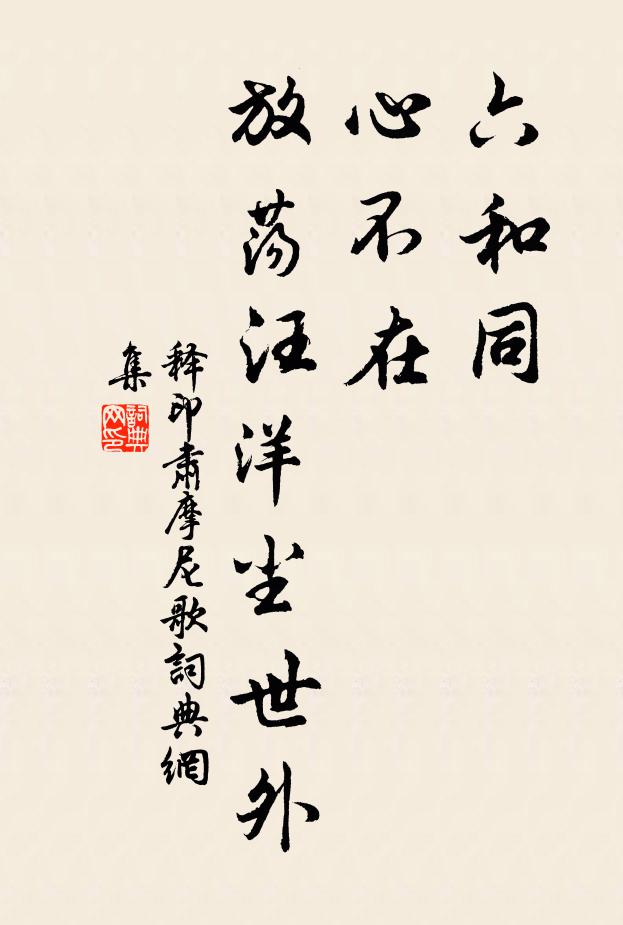 六和同
心不在
放荡汪洋尘世外
释印肃摩尼歌詞典網
集
詞典网印